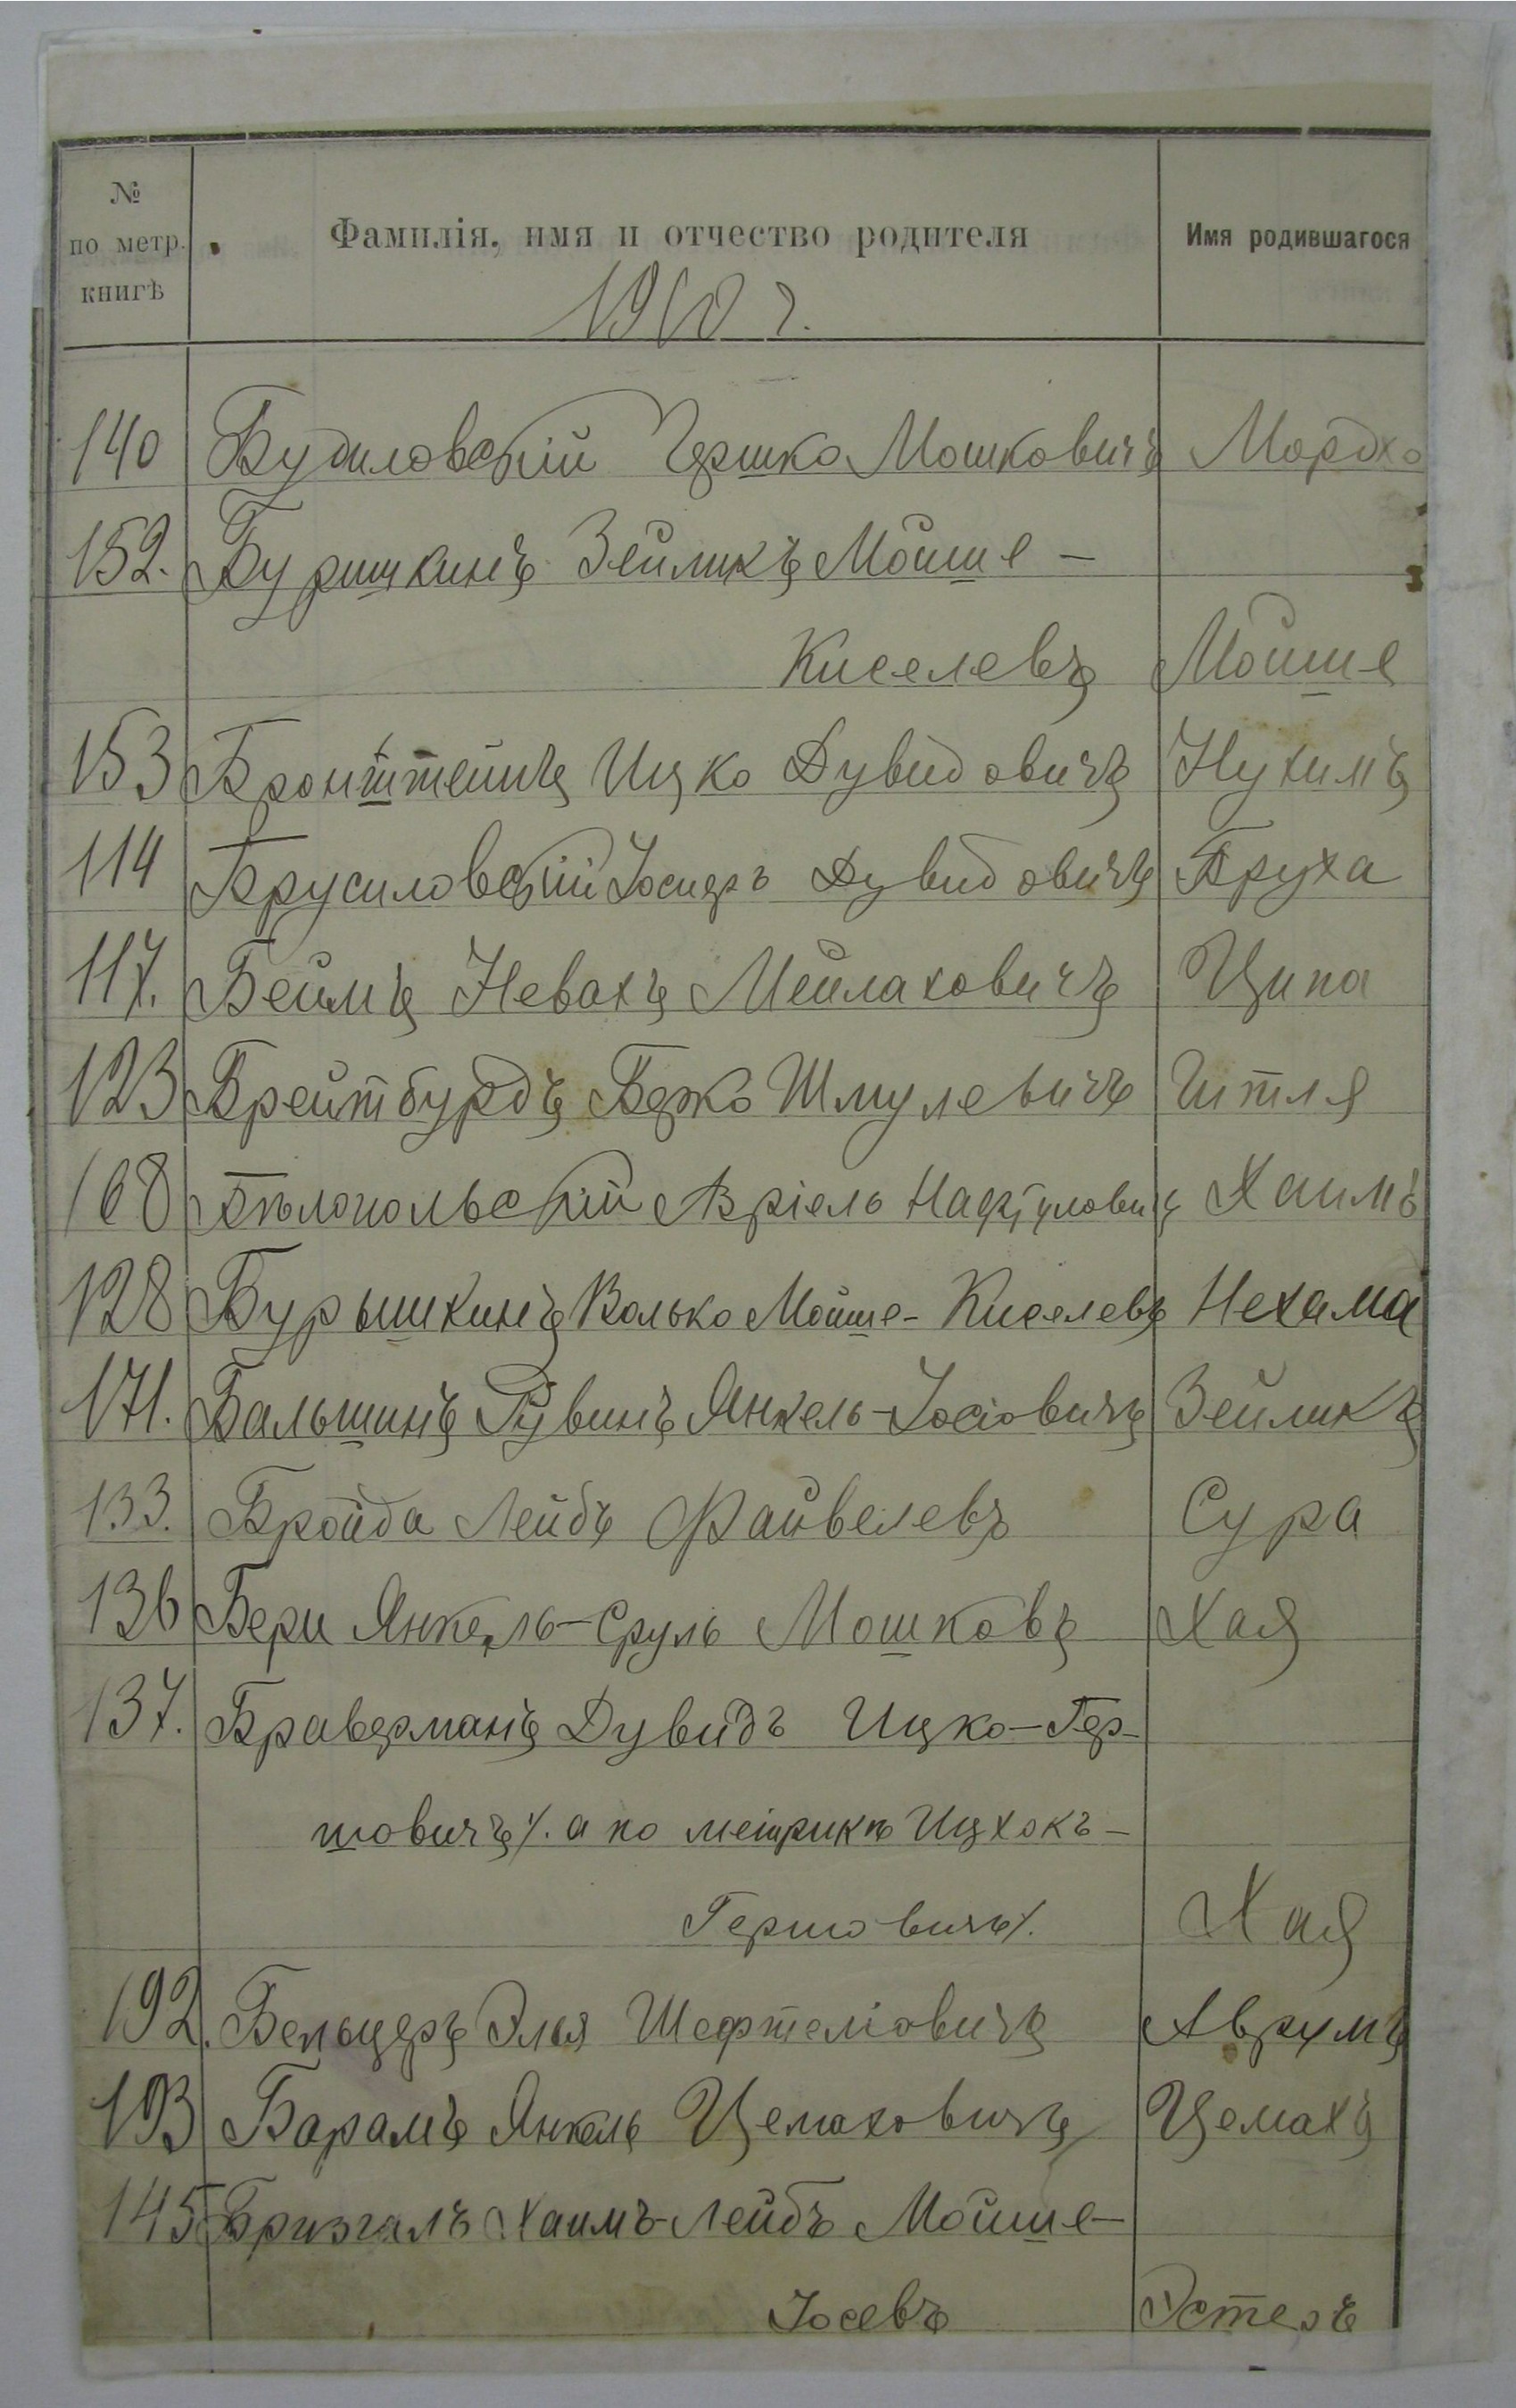 № по метр. книгѣ Фамилія, имя и отчество родителя Имя родившагося
1910 г.
140 Будиловскій Гершко Мошковичъ Мордхо
152. Буришкинъ Зейликъ Мойше-
Киселевъ Мойше
153 Бронштейнъ Ицко Дувидовичъ Нухимъ
114 Брусиловскій Іосифъ Дувидовичъ Бруха
117. Беймъ Невахъ Мейлаховичъ Ципа
123 Брейтбурдъ Берко Шмулевичъ Гитля
168 Бѣлопольскій Азріель Нафтулович Хаимъ
128 Бурышкинъ Волько Мойше-Киселевъ Нехама
171. Бальшинъ Рувинъ Янкель-Іосіовичъ Зейликъ
133. Бройда Лейбъ Файвелевъ Сура
136 Бери Янкель-Сруль Мошковъ Хая
137. Браверманъ Дувидъ Ицко-Гер-
шовичъ /. а по метрикѣ Ицхокъ-
Гершовичъ /. Хая
192. Бельцеръ Элья Шефтеліовичъ Аврумъ
193 Барамъ Янкель Цемаховичъ Цемахъ
145 Бризгалъ Хаимъ-Лейбъ Мойше-
Іосевъ Эстеръ